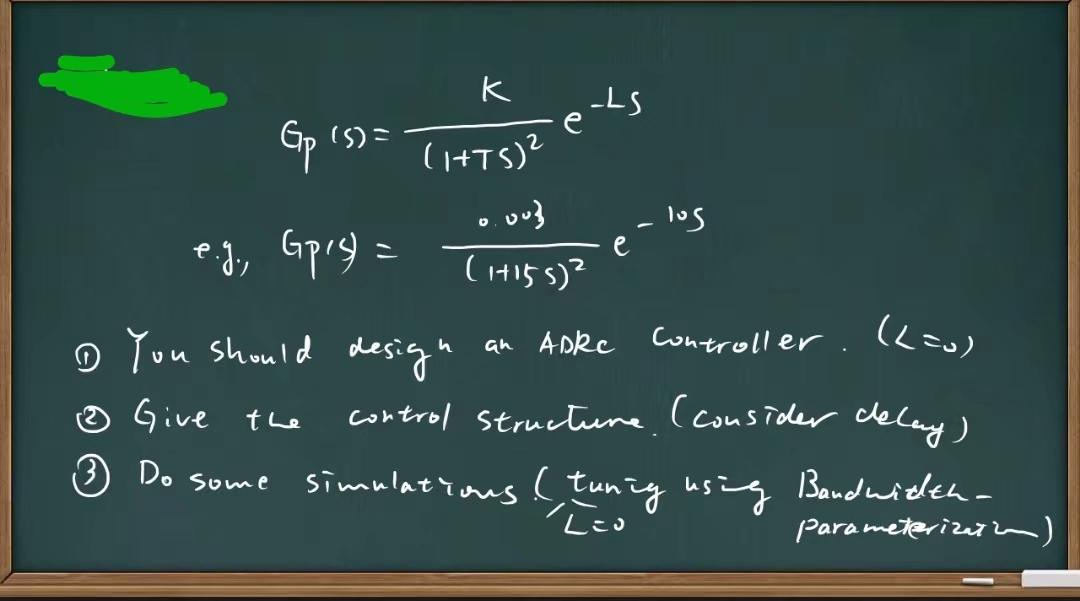 Gp(s) = K / (1+TS)² e^-LS
e.g., Gp(s) = 0.003 / (1+15s)² e^-10s
① You should design an ADRC controller. (L=0)
② Give the control structure. (consider delay)
③ Do some simulations (tunig using Bandwidth-
L=0 parameterization)